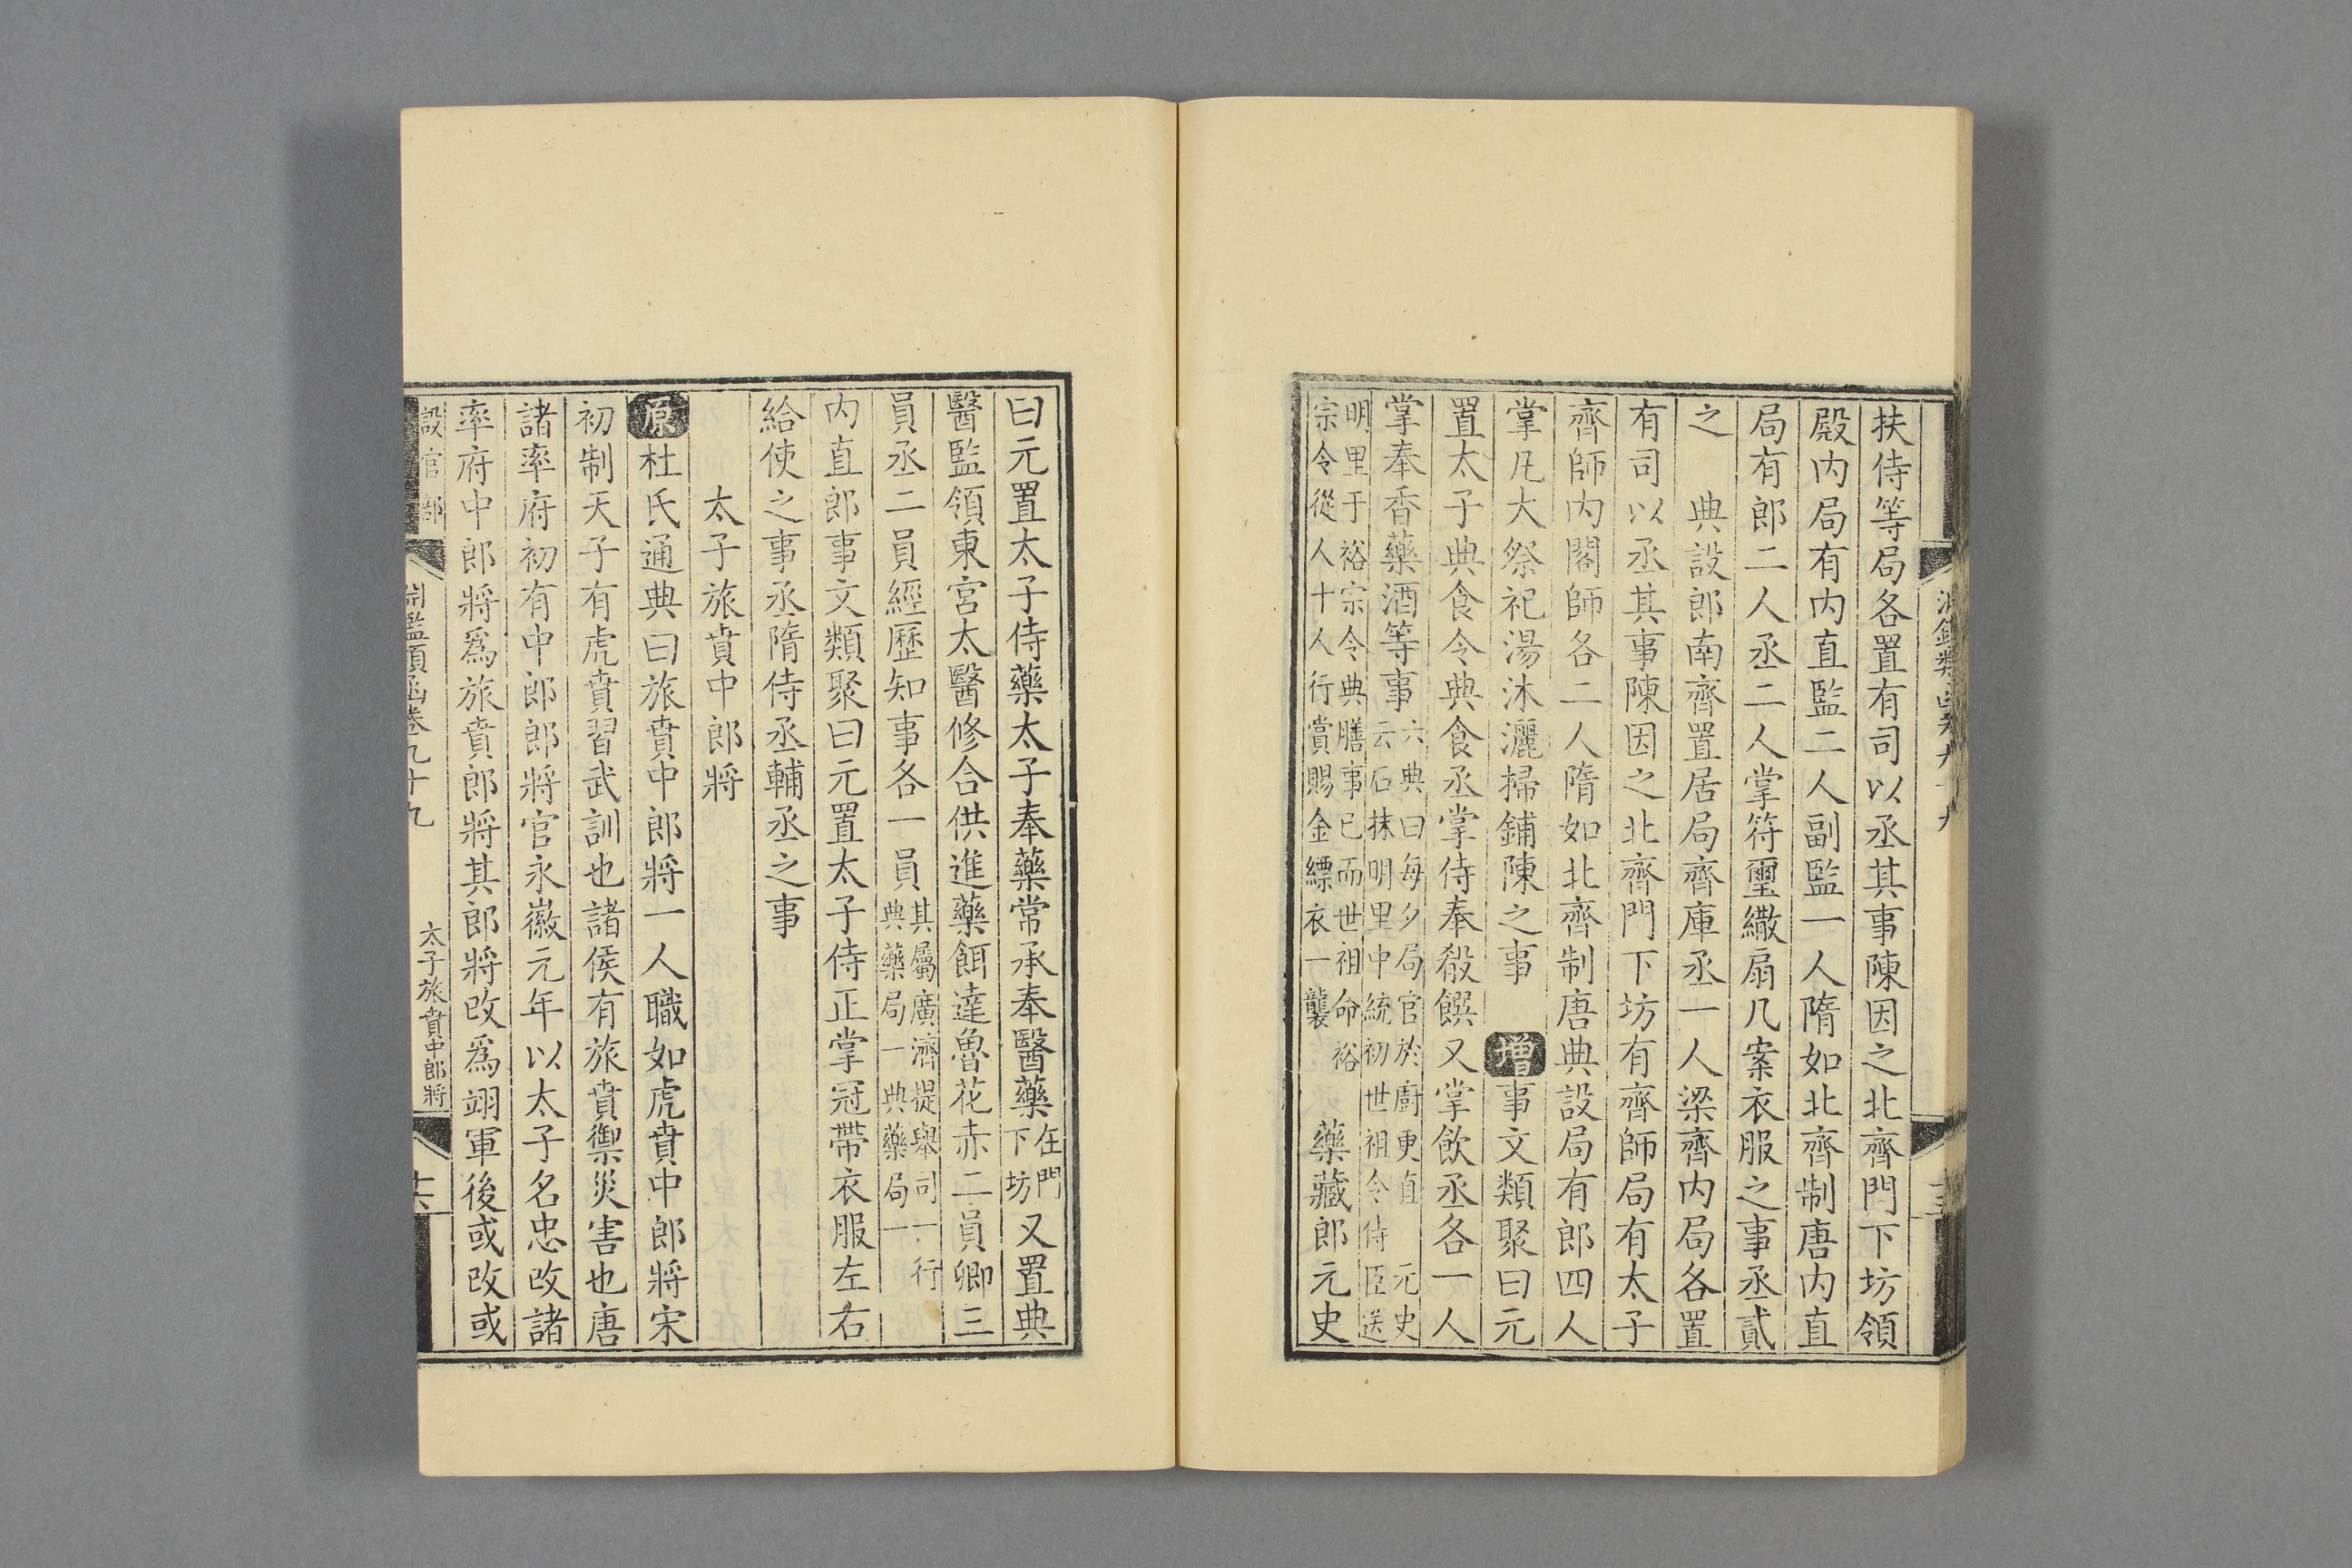 扶侍等局各置有司以丞其事陳因之北齊門下坊領
殿内局有内直監二人副監一人隋如北齊制唐内直
局有郎二人丞二人掌符璽繖扇几案衣服之事丞貳
之　典設郎南齊置居局齊庫丞一人梁齊内局各置
有司以丞其事陳因之北齊門下坊有齊師局有太子
齊師内閣師各二人隋如北齊制唐典設局有郎四人
掌凡大祭祀湯沐灑掃鋪陳之事　增事文類聚曰元
置太子典食令典食丞掌侍奉殽饌又掌飲丞各一人
掌奉香藥酒等事
六典曰每夕局官於廚更直　元史
云石抹明里中統初世祖令侍臣送
明里于裕宗令典膳事已而世祖命裕
宗令從人十人行賞賜金縹衣一襲
藥藏郎元史
曰元置太子侍藥太子奉藥常承奉醫藥
在門
下坊
又置典
醫監領東宮太醫修合供進藥餌達魯花赤二員卿三
員丞二員經歷知事各一員
其屬廣濟提舉司一行
典藥局一典藥局一
内直郎事文類聚曰元置太子侍正掌冠帶衣服左右
給使之事丞隋侍丞輔丞之事
太子旅賁中郎將
原杜氏通典曰旅賁中郎將一人職如虎賁中郎將宋
初制天子有虎賁習武訓也諸侯有旅賁禦災害也唐
諸率府初有中郎郎將官永徽元年以太子名忠改諸
率府中郎將爲旅賁郎將其郎將改爲翊軍後或改或
設官部
淵鑑類函卷九十九
太子旅賁中郎將
十六